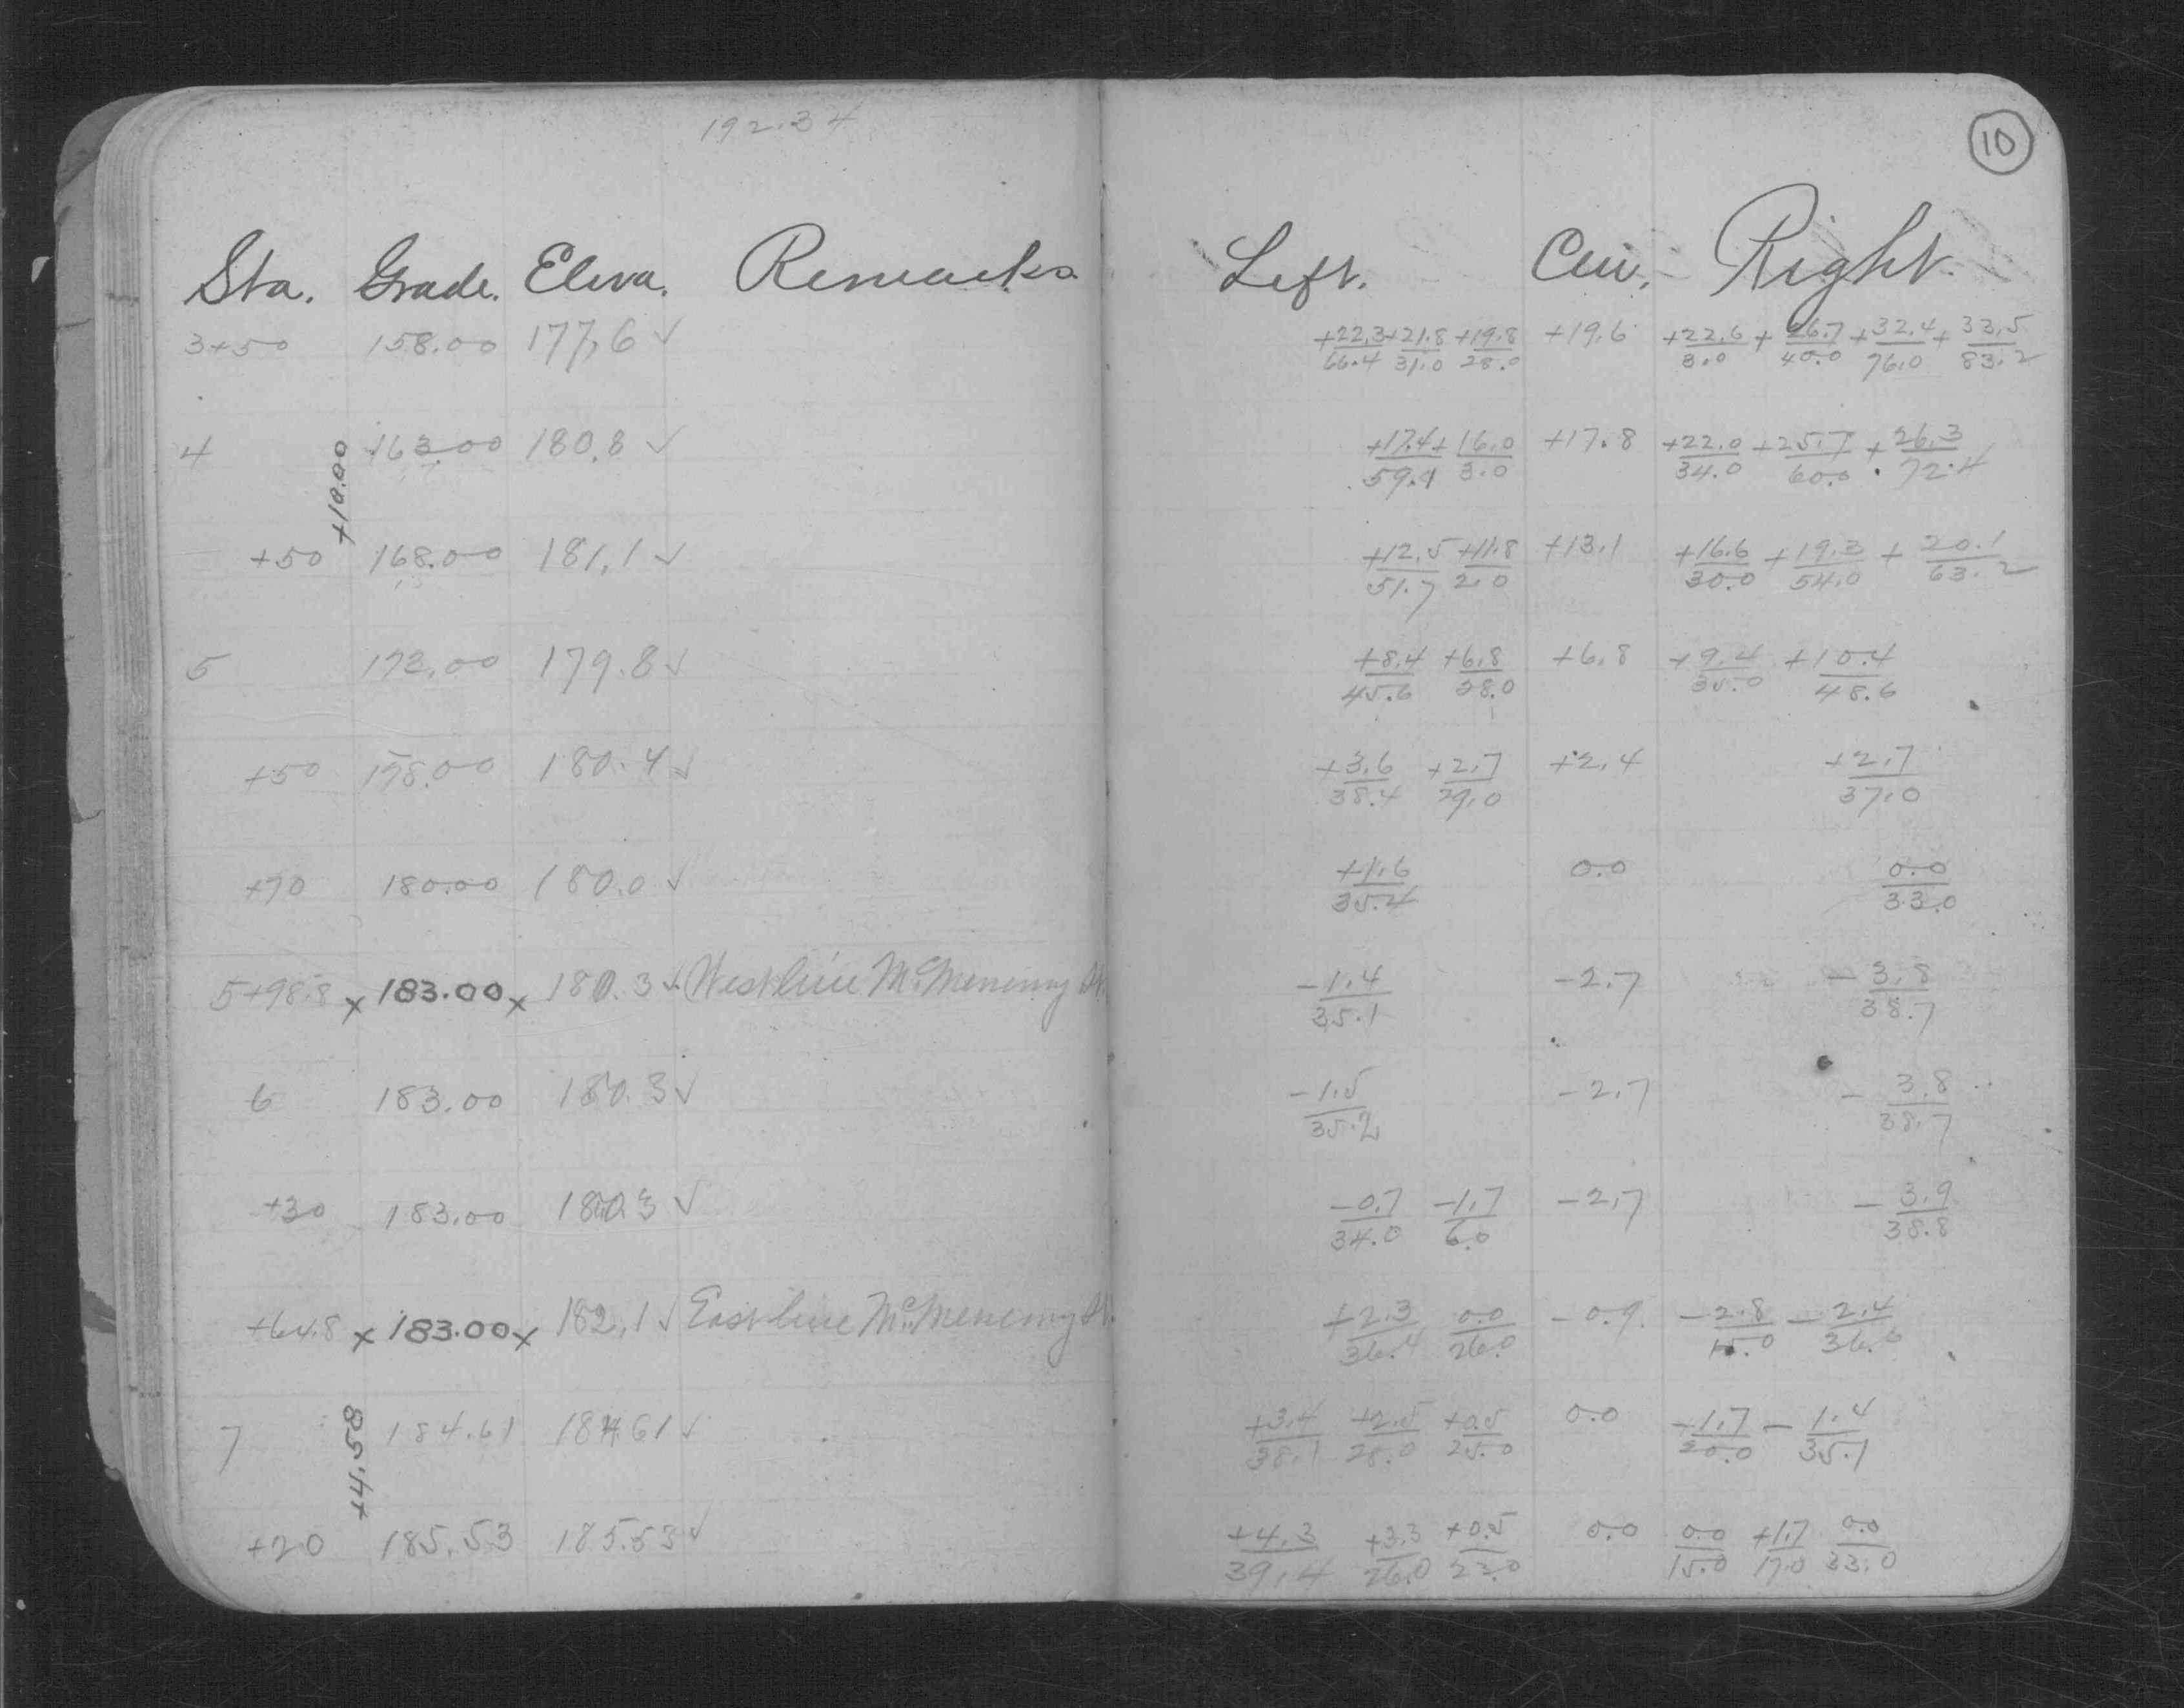 192.34
10
Sta. Grade. Eleva. Remarks Left. Cen. Right.
3+50 158.00 177.6 ✓ +22.3/66.4 +21.8/31.0 +19.8/28.0 +19.6 +22.6/3.0 +26.7/40.0 +32.4/76.0 +33.5/83.2
4 163.00 180.8 ✓ +17.4/59.1 +16.0/3.0 +17.8 +22.0/34.0 +25.7/60.0 +26.3/72.4
+10.00
+50 168.00 181.1 ✓ +12.5/51.7 +11.8/2.0 +13.1 +16.6/30.0 +19.3/54.0 +20.1/63.2
5 173.00 179.8 ✓ +8.4/45.6 +6.8/28.0 +6.8 +9.4/35.0 +10.4/48.6
+50 178.00 180.4 ✓ +3.6/38.4 +2.7/29.0 +2.4 +2.7/37.0
+70 180.00 180.0 ✓ +1.6/35.4 0.0 0.0/33.0
5+98.8 x 183.00 x 180.3 ✓ West line McMenemy St. -1.4/35.1 -2.7 -3.8/38.7
6 183.00 180.3 ✓ -1.5/35.2 -2.7 -3.8/38.7
+30 183.00 180.3 ✓ -0.7/34.0 -1.7/6.0 -2.7 -3.9/38.8
+64.8 x 183.00 x 182.1 ✓ East line McMenemy St. +2.3/36.4 0.0/26.0 -0.9 -2.8/15.0 -2.4/36.6
7 184.61 184.61 ✓ +3.4/38.1 +2.5/28.0 +0.5/25.0 0.0 -1.7/20.0 -1.4/35.1
+4.58
+20 185.53 185.53 ✓ +4.3/39.4 +3.3/26.0 +0.5/22.0 0.0 0.0/15.0 +1.7/17.0 0.0/33.0